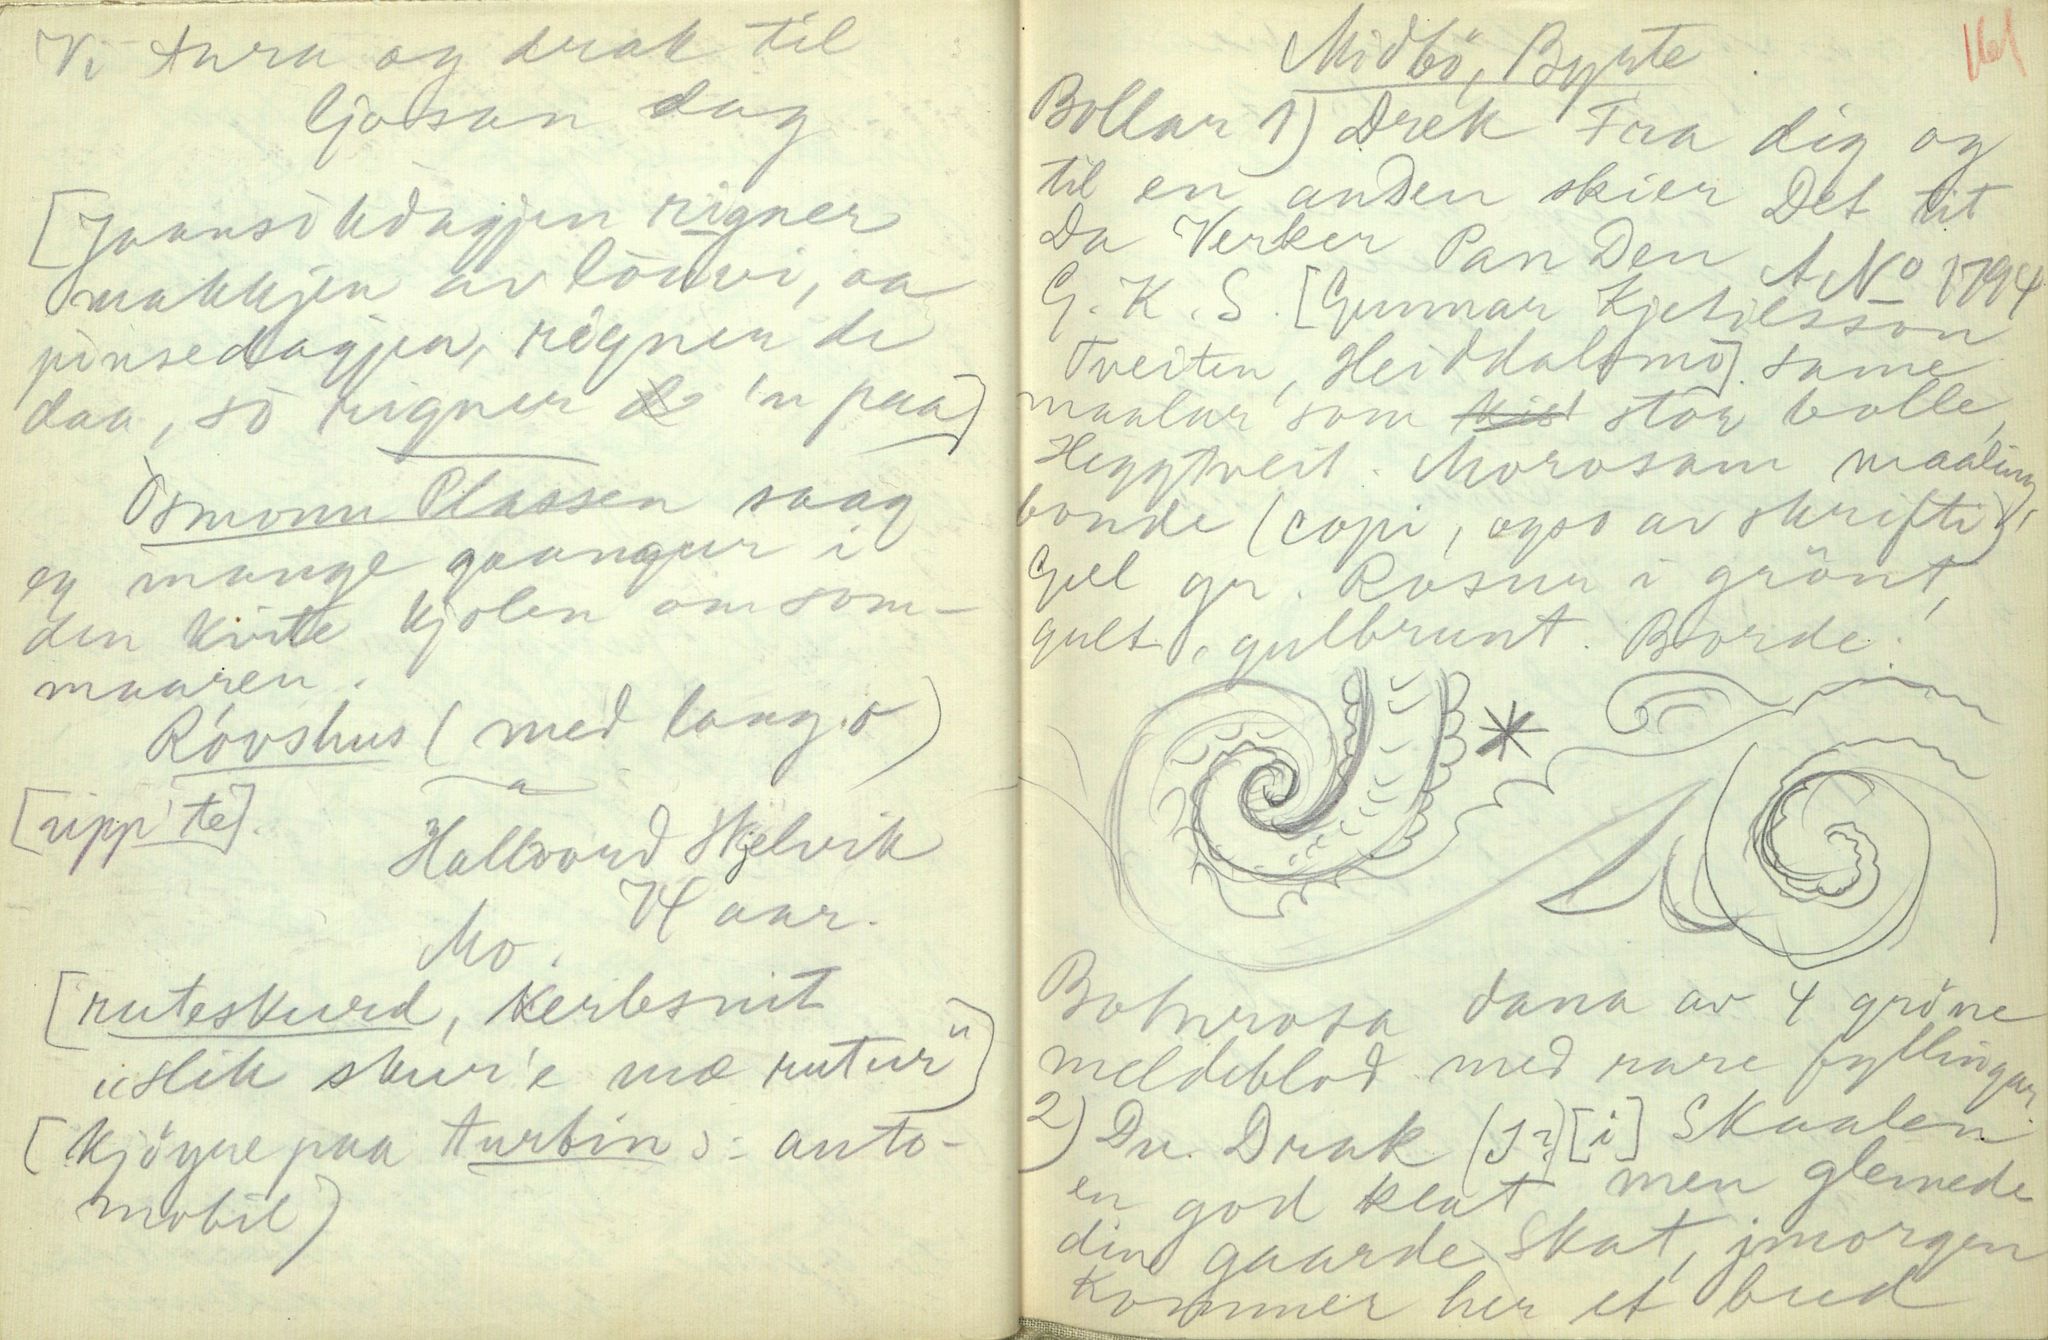 Vi tura og drak til
ljosan dag
[Jaansòkdagjen rigner
makkjen av lòuvi, aa
pinsedagjen, rigner de
daa, sò rigner 'n paa]
Òsmonn Plassen saag
eg mange gaangur i
den kvite kjolen om som-
maaren.
Róvshus (med lang o)
[uppi te].
Hallvord Skjelvik
74 aar.
Mo.
[ruteskurd, Kerbsnit
"slik skur'e mæ rutur"]
[kjöyre paa turbin ɔ: auto-
mobil]
161
Midbö, Byrte
Bollar 1) Drek Fra dig og
til en anden skier Det tit
Da Verker Pan Den
A No 1794
G. K. S. [Gunnar Kjetilsson
Tveiten, Heiddalsmo]. same
maalar som stor bolle,
Heggtveit. Morosam maaling,
bonde (copi, ogso av skrifti),
Gul gr. Rosur i grönt,
gult, gulbrunt. Borde:
Botnrosa dana av 4 gröne
meldeblod med rare fyllingar.
2) Du. Drak (J?) [i] Skaalen
en god klat men glemede
din gaarde Skat, jmorgen
kommer her et bud